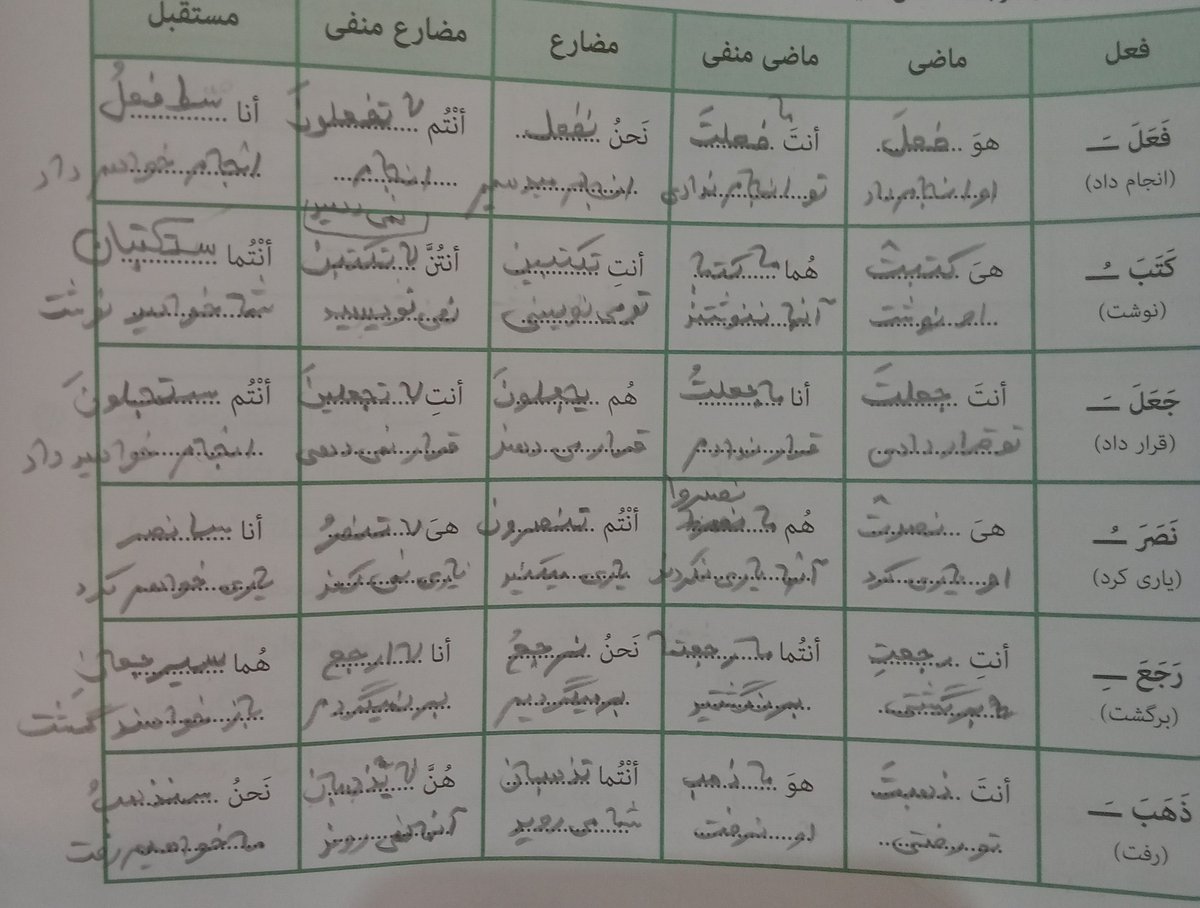 فعل ماضی ماضی منفی مضارع مضارع منفی مستقبل
فَعَلَ ـَ هوَ فعلَ أنتَ ما فعلتَ نَحنُ نفعل أنْتُم لا تفعلون أنا
(انجام داد) او انجام داد تو انجام ندادی انجام میدهیم انجام انجام خواهم داد
نمی دهید
کَتَبَ ـُ هیَ کتبتْ هُما ما کتبا أنتِ تکتبین أنتُنَّ لا تکتبن أنْتُما ستکتبان
(نوشت) او نوشت آنها ننوشتند تو می نویسی نمی نویسید شما خواهید نوشت
جَعَلَ ـَ أنتَ جعلتَ أنا ما جعلتُ هُم یجعلونَ أنتِ لا تجعلینَ أنْتُم
(قرار داد) تو قرار دادی قرار ندادم قرار می دهند قرار نمی دهی انجام خواهید داد
نصروا
نَصَرَ ـُ هیَ نصرتْ هُم ما أنْتُم تنصرون هیَ لا تنصرُ أنا
(یاری کرد) او یاری کرد آنها یاری نکردند یاری میکنید یاری نمی کند یاری خواهم کرد
رَجَعَ ـِ أنتِ رجعتِ أنتُما ما رجعتما نَحنُ نرجعُ أنا لا ارجع هُما سیرجعانِ
(برگشت) برگشتی برنگشتید برمیگردیم برنمیگردم باز خواهند گشت
ذَهَبَ ـَ أنتَ ذهبتَ هوَ ما ذهب أنْتُما تذهبان هُنَّ لا نَحنُ سنذهبُ
(رفت) تو رفتی او نرفت شما می روید آنها نمی روند ما خواهیم رفت